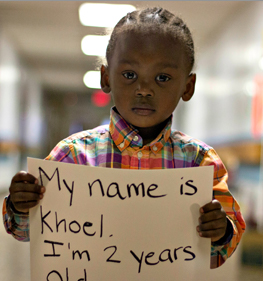 My name is
Khoel.
I'm 2 years
Old